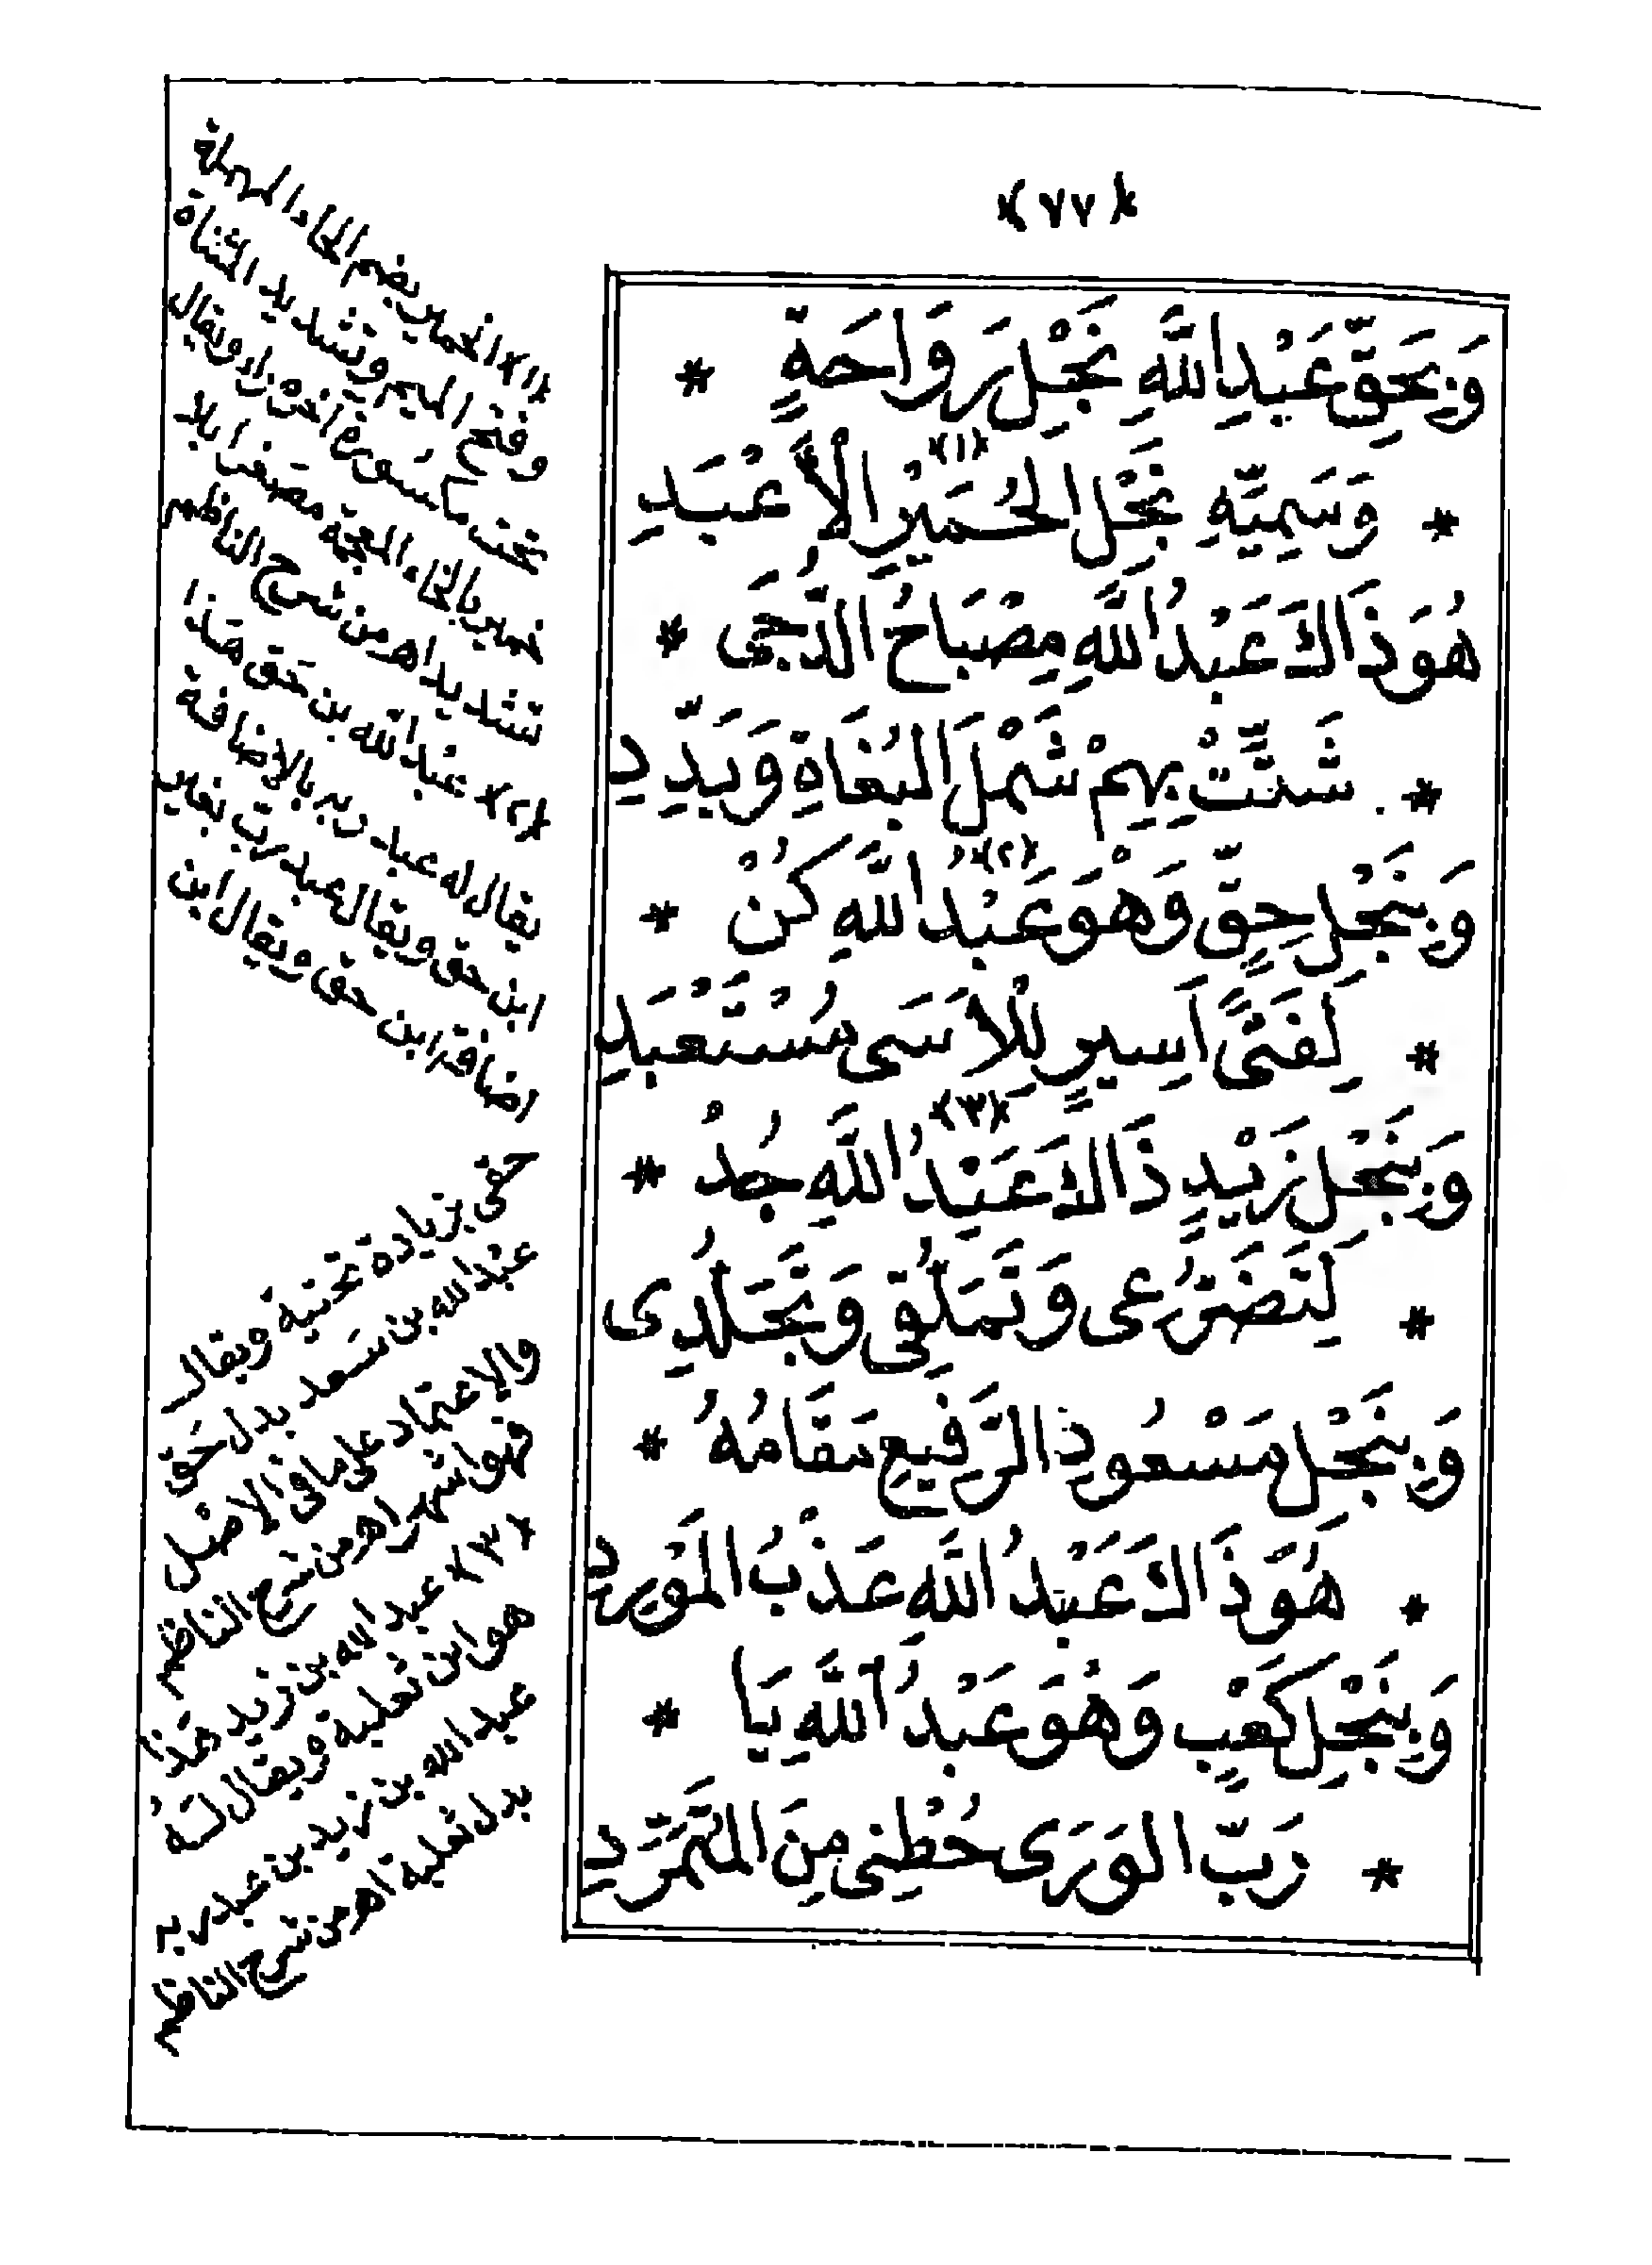 ﴿٧٧﴾
وَبِحَقِّ عَبْدِ اللهِ نَجْلِ رَوَاحَةٍ *
* وَسَمِيِّهِ نَجْلِ الحُمَيِّرِ (١) الأَعْبَدِ
هُوَ ذَاكَ عَبْدُ اللهِ مِصْبَاحُ الدُّجَى *
* شَتِّتْ بِهِمْ شَمْلَ البُغَاةِ وَبَدِّدِ
وَبِنَجْلِ حِقٍّ وَهْوَ عَبْدُ (٢) اللهِ كُنْ *
* لِفَتًى اَسِيرٍ لِلْاَسَى مُسْتَعْبَدِ
وَبِنَجْلِ زَيْدٍ ذَاكَ عَبْدُ (٣) اللهِ جُدْ *
* لِتَضَرُّعِى وَتَمَلُّقِى وَتَجَلُّدِى
وَبِنَجْلِ مَسْعُودِ الرَّفِيعِ مَقَامُهُ *
* هُوَ ذَاكَ عَبْدُ اللهِ عَذْبُ المَوْرِدِ
وَبِنَجْلِ كَعْبٍ وَهُوَ عَبْدُ اللهِ يَا *
* رَبَّ الوَرَى حُطْنِى مِنَ المُتَمَرِّدِ
﴿١﴾ الحمير بضم الحاء المهملة
وفتح الميم وتشديد المثناة
تحت مكسورة آخره راء ويقال
خمير بالخاء المعجمة مصغرا بلا
تشديد اهـ من شرح الناظم
﴿٢﴾ عبد الله بن حق هذا
يقال له عبد ربه بالاضافة
ابن حق ويقال عبد رب بغير
اضافة ابن حق ويقال ابن
حقى بزيادة تحتية ويقال
عبد الله بن سعد بدل حق
والاعتماد على ما فى الاصل
فهو اشهر اهـ من شرح الناظم
﴿٣﴾ عبد الله بن زيد هذا
هو ابن ثعلبة ويقال له
عبد الله بن زيد بن عبد ربه
بدل ثعلبة اهـ من شرح الناظم